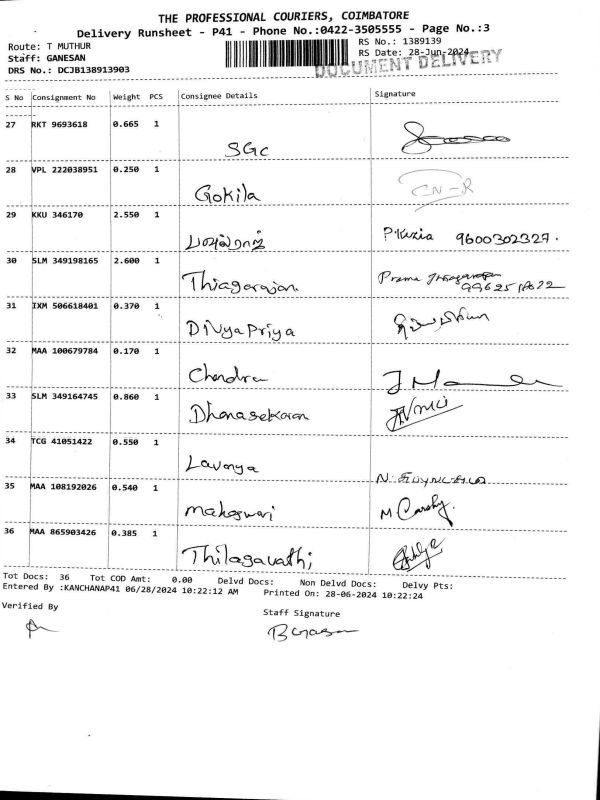 THE PROFESSIONAL COURIERS, COIMBATORE
Delivery Runsheet - P41 - Phone No.:0422-3505555 - Page No.:3
Route: T MUTHUR RS No.: 1389139
Staff: GANESAN RS Date: 28-Jun-2024
DRS No.: DCJB138913903 DOCUMENT DELIVERY
S No Consignment No Weight PCS Consignee Details Signature
27 RKT 9693618 0.665 1
SGC
28 VPL 222038951 0.250 1
Gokila CN-R
29 KKU 346170 2.550 1
P.Kezia 9600302327.
30 SLM 349198165 2.600 1
Thiagarajan Prema
31 IXM 506618401 0.370 1
Divya Priya
32 MAA 100679784 0.170 1
Chandra
33 SLM 349164745 0.860 1
Dhanasekaran
34 TCG 41051422 0.550 1
Lavanya
35 MAA 108192026 0.540 1
Maheswari
36 MAA 865903426 0.385 1
Thilagavathi
Tot Docs: 36 Tot COD Amt: 0.00 Delvd Docs: Non Delvd Docs: Delvy Pts:
Entered By :KANCHANAP41 06/28/2024 10:22:12 AM Printed On: 28-06-2024 10:22:24
Verified By Staff Signature